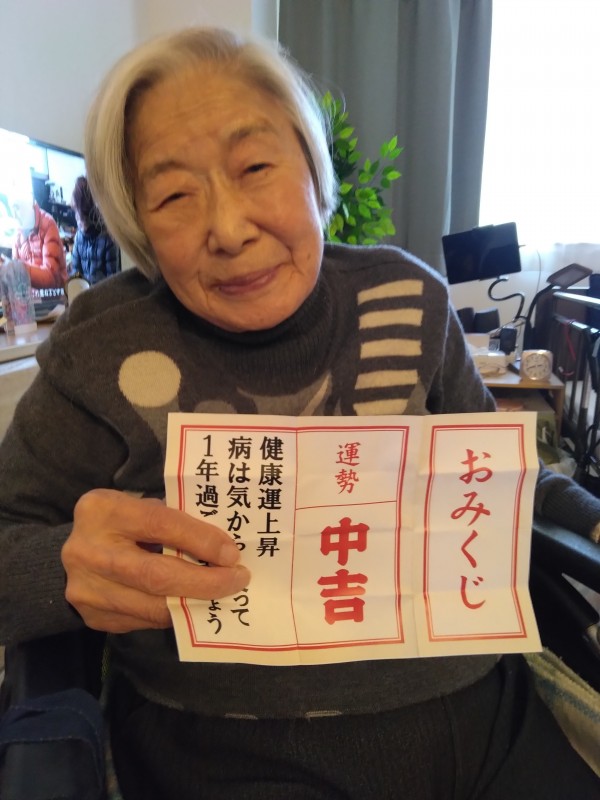 おみくじ
運勢
中吉
健康運上昇
病は気から
って
1年過ご
ょう